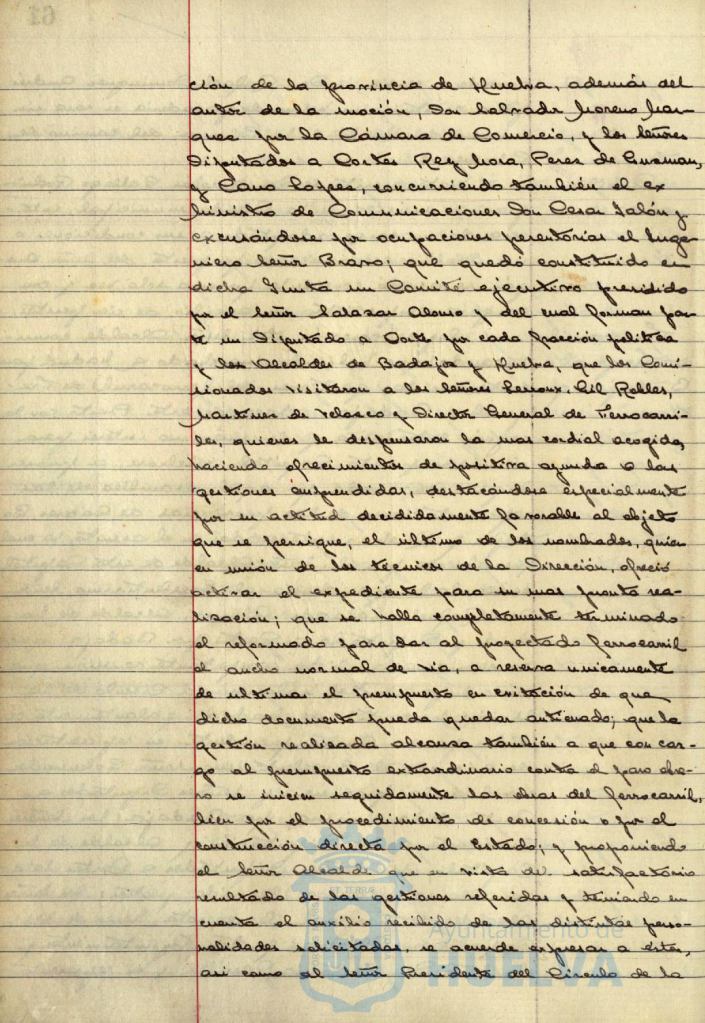 ción de la provincia de Huelva, además del
autor de la moción, Don Salvador Moreno Mar-
quez por la Cámara de Comercio, y los Señores
Diputados a Cortes Rey Mora, Perez de Guzman,
y Cano Lopez, concurriendo también el ex
Ministro de Comunicaciones Don Cesar Jalón y
excusándose por ocupaciones perentorias el Inge-
niero Señor Bravo; que quedó constituido en
dicha Junta un Comité ejecutivo presidido
por el Señor Salazar Alonso y del cual forman par-
te un Diputado a Cortes por cada fracción politica
y los Alcaldes de Badajoz y Huelva, que los Comi-
sionados visitaron a los Señores Lerroux, Gil Robles,
Martinez de Velasco y Director General de Ferrocarri-
les, quienes le dispensaron la mas cordial acogida,
haciendo ofrecimientos de positiva ayuda a las
gestiones emprendidas, destacándose especialmente
por su actitud decididamente favorable al objeto
que se persigue, el último de los nombrados, quien
en unión de los técnicos de la Dirección, ofreció
activar el expediente para su mas pronta rea-
lización; que se halla completamente terminado
el reformado para dar al proyectado ferrocarril
el ancho normal de via, a reserva unicamente
de ultimar el presupuesto en evitación de que
dicho documento pueda quedar anticuado; que la
gestión realizada alcanza también a que con car-
go al presupuesto extraordinario contra el paro obre-
ro se inicien seguidamente las obras del ferrocarril,
bien por el procedimiento de concesión o por el
construcción directa por el Estado; y proponiendo
el Señor Alcalde que en vista del satisfactorio
resultado de las gestiones referidas y teniendo en
cuenta el auxilio recibido de las distintas perso-
nalidades solicitadas, se acuerde expresar a estas,
asi como al Señor Presidente del Circulo de la
Ayuntamiento de
HUELVA